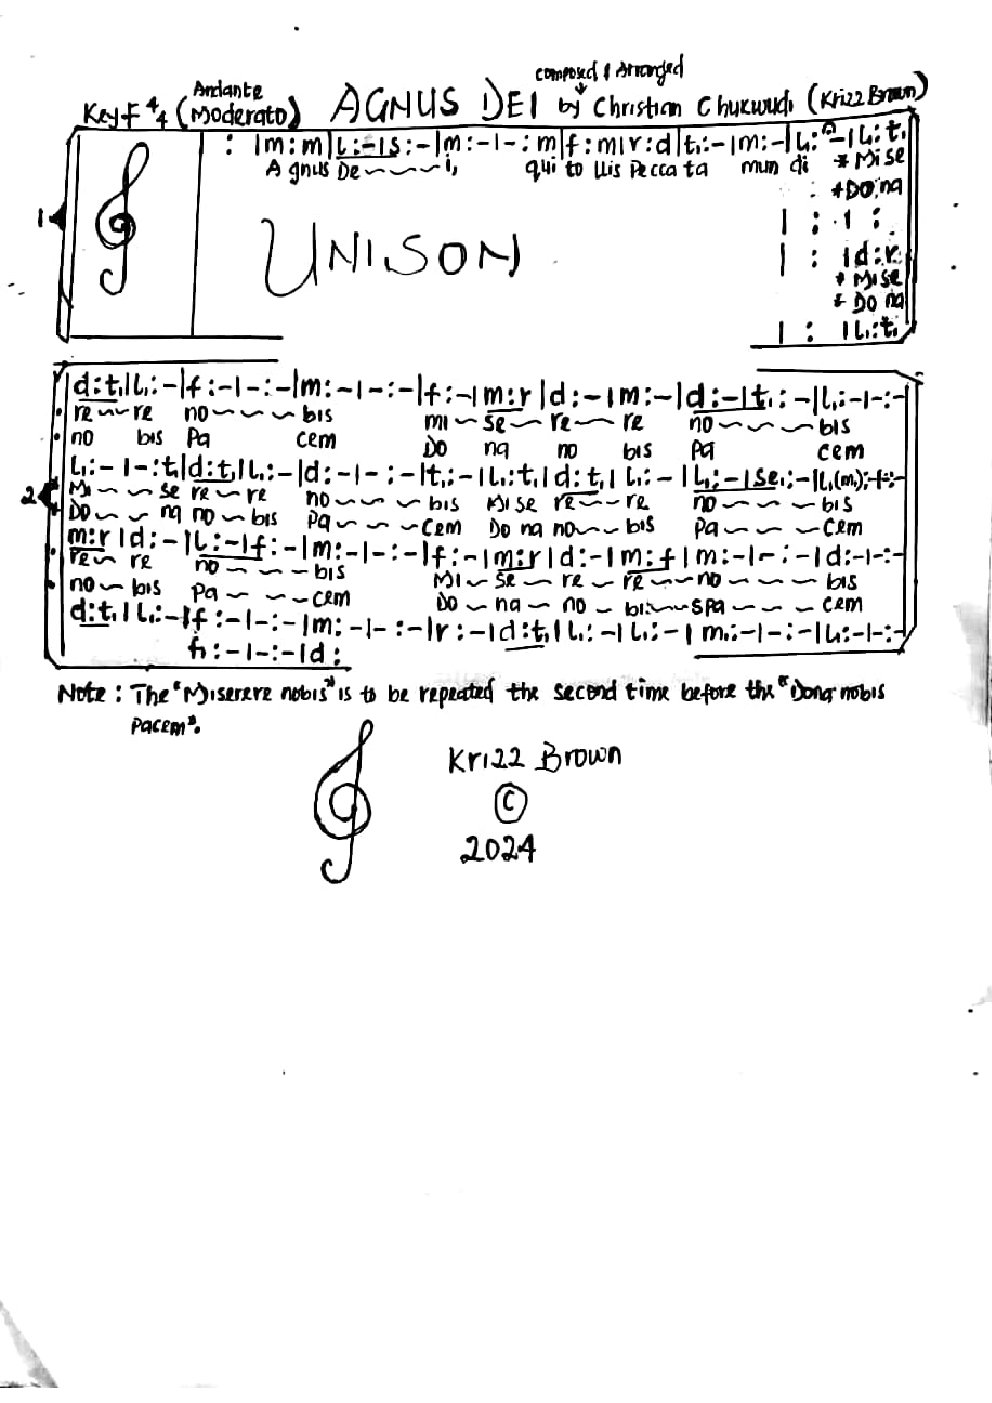 Key F 4/4 (Andante Moderato) AGNUS DEI composed & Arranged by Christian Chukwudi (Krizz Brown)
: |m:m|l:-|s:-|m:-|-:m|f:m|r:d|t₁:-|m:-|l₁:-|l₁:t₁
Agnus De~~~i, qui to llis Pecca ta mun di *Mise
*Dona
1
| : | :
| : |d:r
*Mise
*Dona
UNISON
| : |l₁:t₁
d:t₁|l₁:-|f:-|-:-|m:-|-:-|f:-|m:r|d:-|m:-|d:-|t₁:-|l₁:-|-:-
re~~re no~~~bis mi~se~re~re no~~~~bis
no bis Pa cem Do na no bis Pa cem
2
l₁:-|-:t₁|d:t₁|l₁:-|d:-|-:-|t₁:-|l₁:t₁|d:t₁|l₁:-|l₁:-|se₁:-|l₁(m₁):-|-:-
Mi~~~se re~re no~~~~bis Mise re~~re no~~~~bis
Do~~~na no~bis Pa~~~cem Do na no~~bis Pa~~~~cem
m:r|d:-|l:-|f:-|m:-|-:-|f:-|m:r|d:-|m:f|m:-|-:-|d:-|-:-
re~re no~~~~bis Mi~se~re~re~~no~~~~bis
no~bis Pa~~~cem Do~na~no~bi~~sPa~~~~cem
d:t₁|l₁:-|f:-|-:-|m:-|-:-|r:-|d:t₁|l₁:-|l₁:-|m₁:-|-:-|l₁:-|-:-
f₁:-|-:-|d:
Note: The "Miserere nobis" is to be repeated the second time before the "Dona nobis
Pacem".
Krizz Brown
©
2024